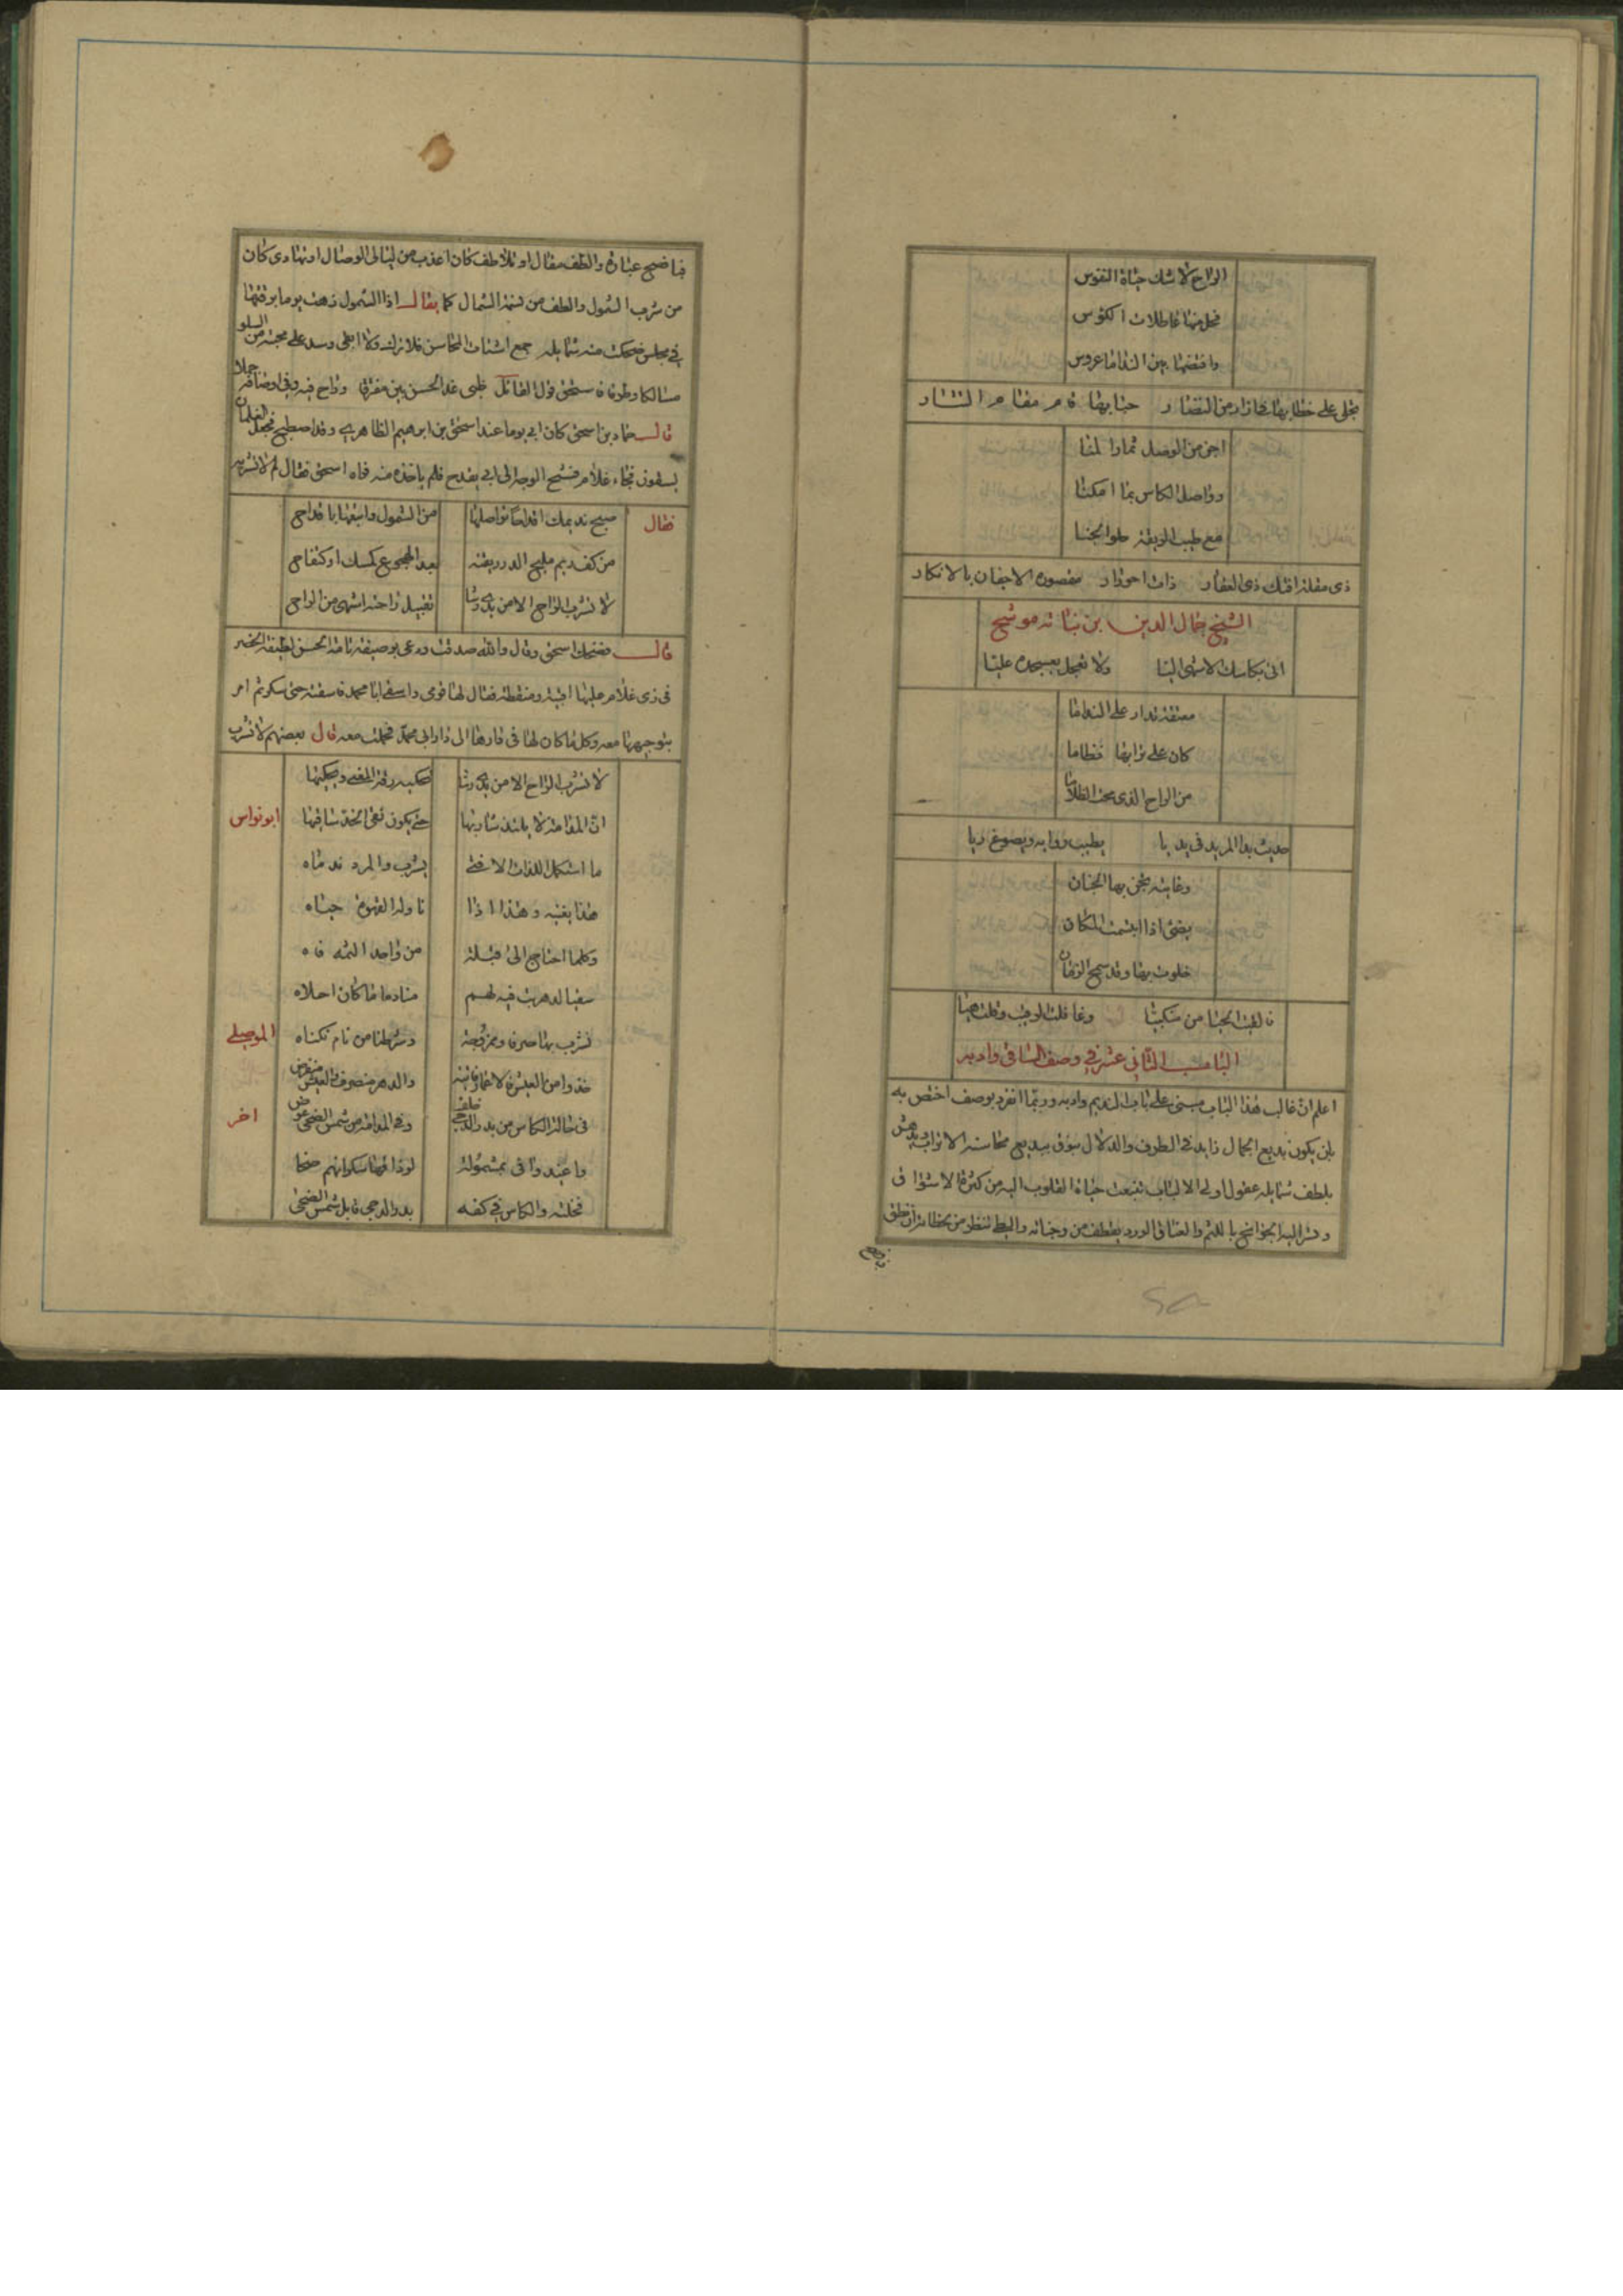 الراح لا شك حياة النفوس
فحل منها عاطلات الكؤس
وافتضها بين الندامى عروس
تجلى على خطابها في ازار من النضار حبابها قام مقام النثار
اجن من الوصل ثمار المنا
وواصل الكاس بما امكنا
مع طيب الريقة حلو الجنا
ذي مقلة افتك ذي الفقار ذات احورار مقصورة الاجفان بالانكار
الشيخ جمال الدين بن نباته موشح
الى بكاسك الاشهى اليا ولا تبخل بعسجده عليا
معتقة تدار على الندامى
كان على ترايبها نظاما
من الراح الذي يمحى الظلاما
حديث يدا المريد في يديا يطيب روايه ويضوع ريا
وغانية يجن بها الجنان
يضئ اذا ابتسمت المكان
خلوت بها وقد سمح الزمان
فالقيت الحيا من منكبيا وغافلت الرقيب وقلت هيا
الباب الثاني عشر في وصف الساقي وادبه
اعلم ان غالب هذا الباب مبنى على باب النديم وادبه وربما انفرد بوصف اختص به
بان يكون بديع الجمال زايد في الظرف والدلال يفوق ببديع محاسنه الاتراب ويدهش
بلطف شمايله عقول اولى الالباب تنبعث حياة القلوب اليه من كثرة الاشواق
وتشر اليه الجوانح باللثم والعناق الورد يقطف من وجناته والبط تنظر من لحظاته ان نطق
فبافصح عبارة والطف مقال او تلاطف كان اعذب من ليالى الوصال او تهادى كان
من شرب الشمول والطف من نسمة الشمال كما يقال اذا الشمول زهت يوما برقتها
في مجلس ضحكت منه شمايله جمع اشتات المحاسن فلا ترك ولا ابقى وسد على محبته من السلو
مسالكا وطرقا فاستحق قول القائل ظبى غدا الحسن بين مفرقا وراح فيه وفي اوصافه جملا
قال حماد بن اسحق كان ابي يوما عند اسحق بن ابرهيم الظاهري وقد اصطبح فجعل الغلمان
يسقون فجاء غلام قبيح الوجه الى ابي بقدح فلم ياخذه منه فراه اسحق فقال لم لا تشربه
فقال صبح نديمك اقداحا تواصلها من الشمول واتبعها باقداحى
من كف ريم مليح الدر ريقته بعد الهجوع كمسك او كتفاحى
لا تشرب الراح الا من يدى رشا تقبيل راحته اشهى من الراحى
قال فضحك اسحق وقال والله صدقت ودعى بوصيفة تامة الحسن لطيفة الخصر
في زى غلام عليها اقبية ومنطقة فقال لها قومى واسقى ابا محمد فاسقته حتى سكر ثم امر
بتوجيهها معه وكل ما كان لها في دارها الى دار ابى محمد فحملت معه قال بعضهم لا تشرب
لا تشرب الراح الا من يدى رشا تحكيه رقة المعنى ويحكيها
ان المدامة لا يلتذ شاربها حتى يكون نقى الخد ساقيها ابو نواس
ما استكمل اللذات الا فتى يشرب والمرد ندماه
هذا يغنيه وهذا اذا ناوله القهوة حياه
وكلما احتاج الى قبلة من واحد الثمه فاه
سقيا لدهر بت فيه لهم منادما ما كان احلاه
نشرب بها صرفا وممزوجة وشرطنا من نام نكناه الموصلى
خذوا من العيش فالاعمار فانية والدهر منصرف والعيش منقرض
في حالة الكاس من بدر الدجى خلف وفى المدامة من شمس الضحى عوض اخر
واغيد وافى بمشمولة لو ذاقها سكرانهم صحا
فخلته والكاس في كفه بدر الدجى قابل شمس الضحى